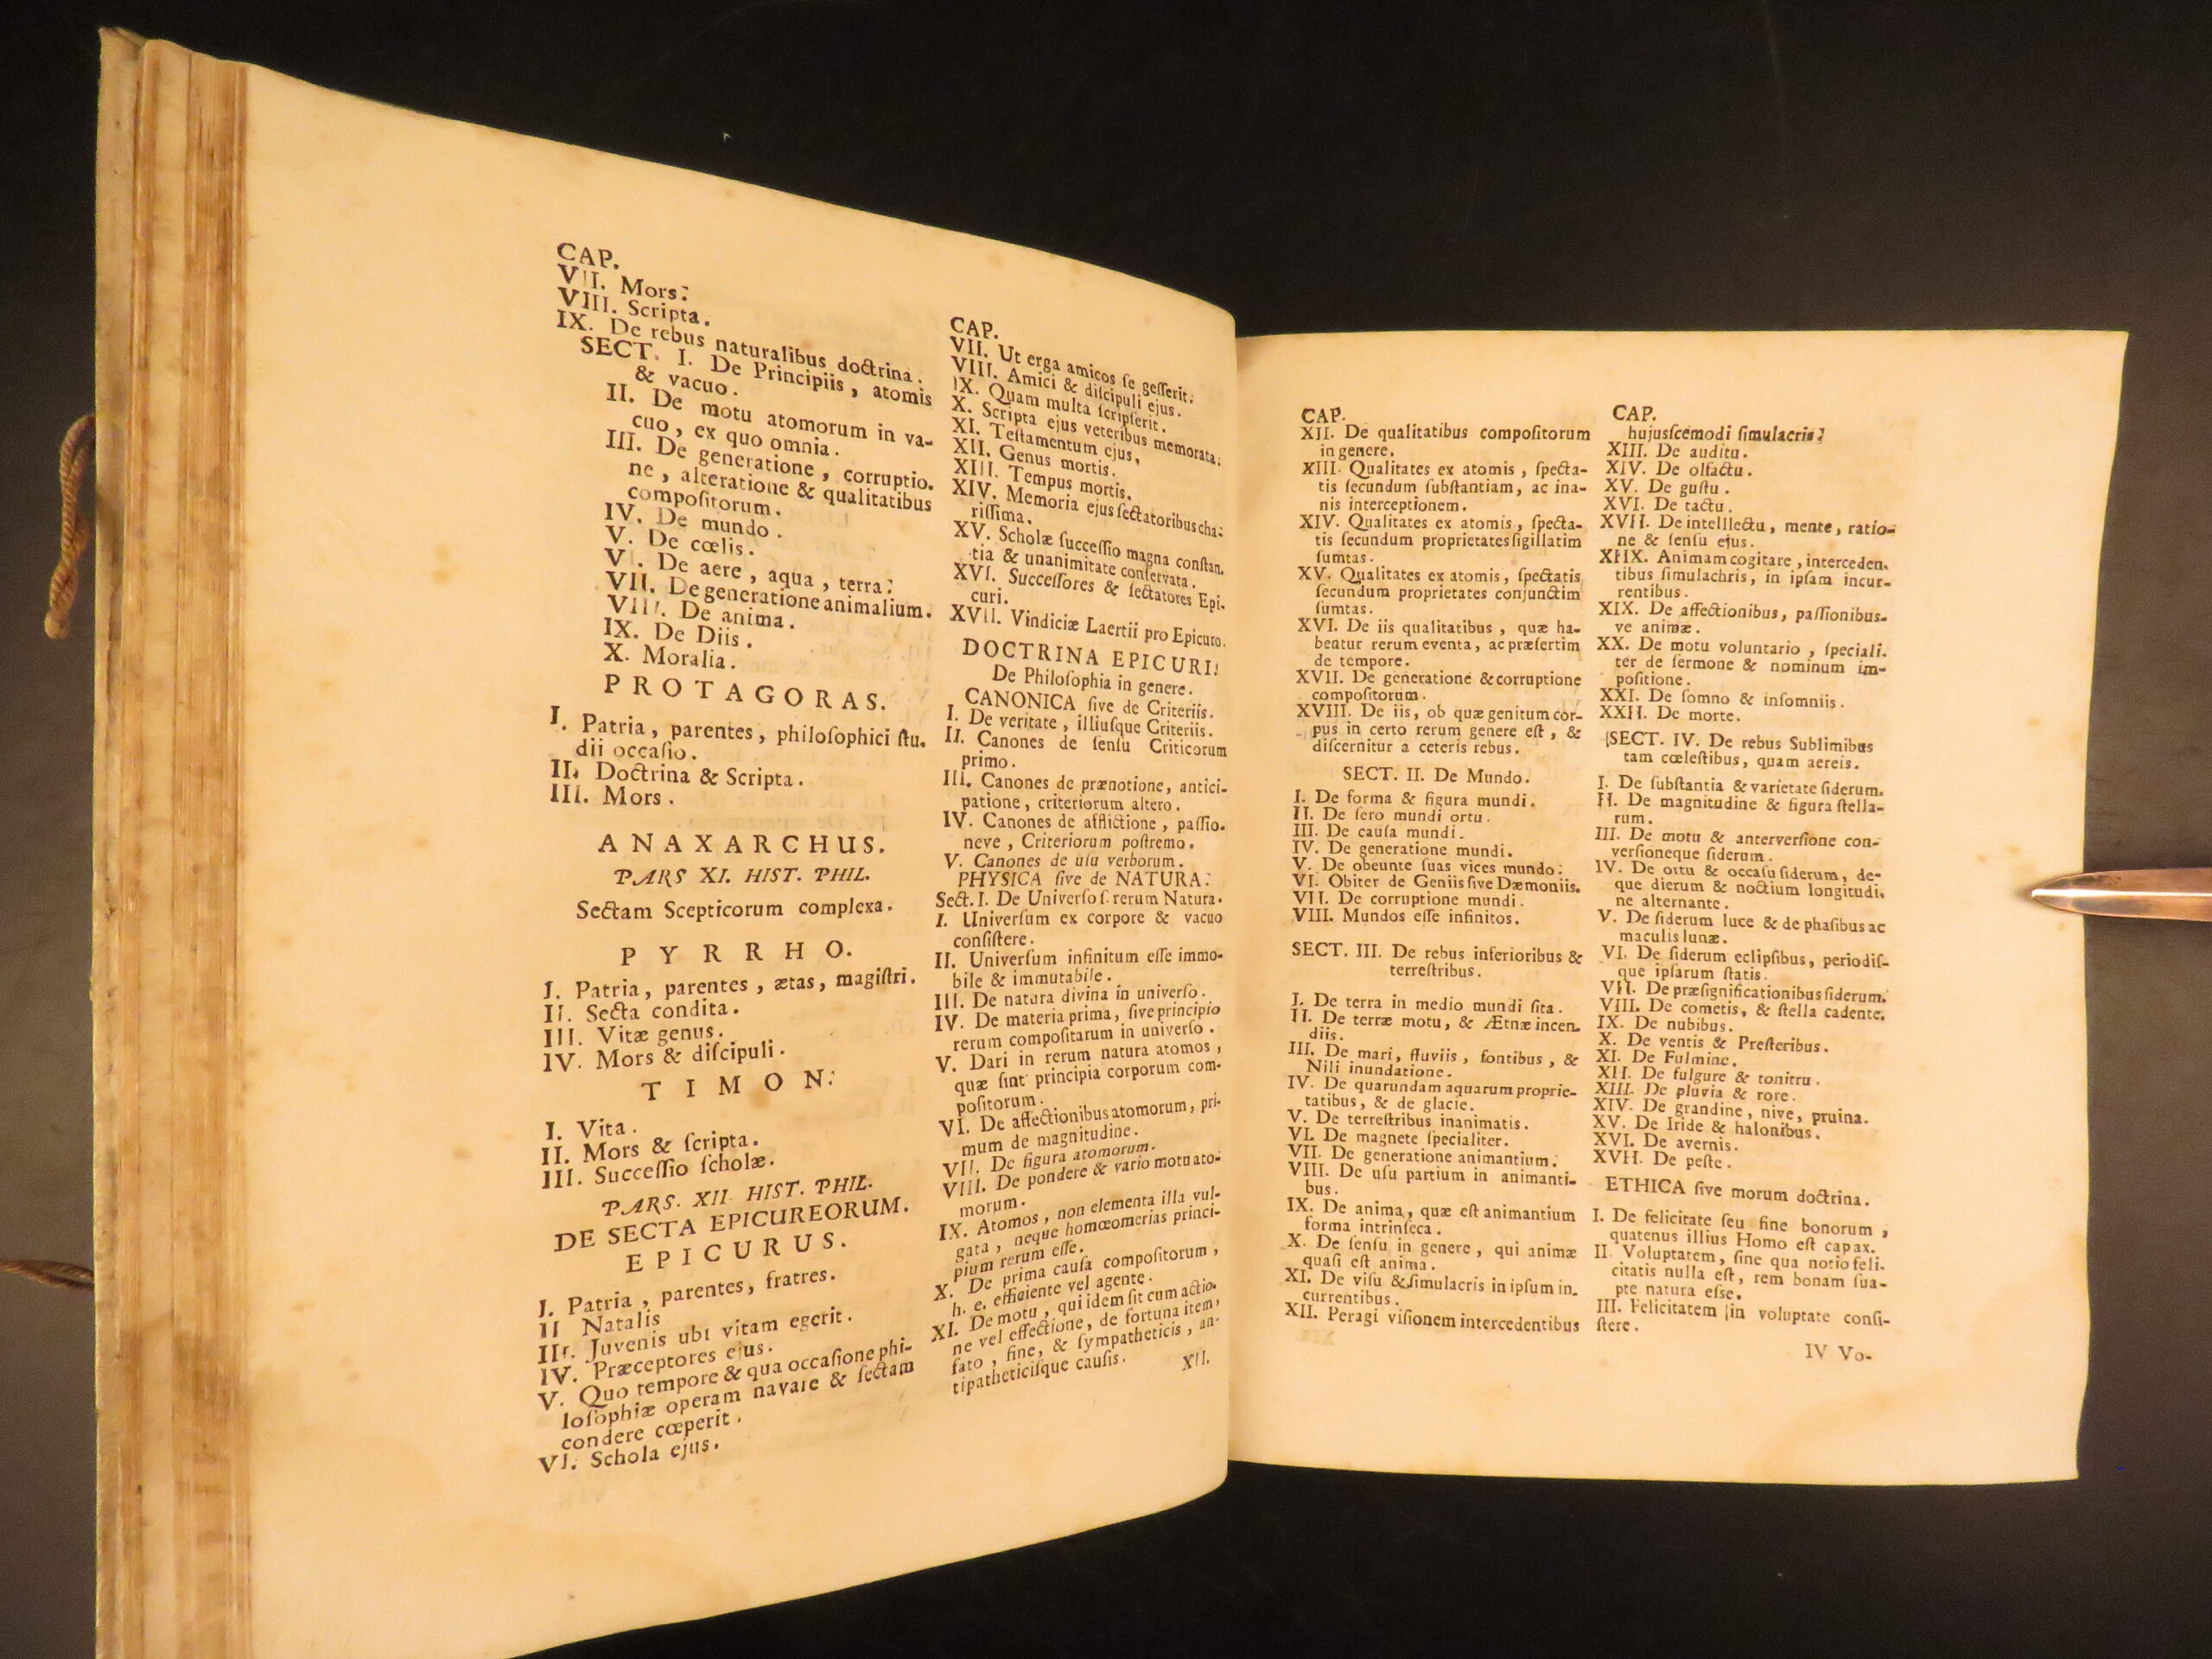 CAP.
VII. Mors.
VIII. Scripta.
IX. De rebus naturalibus doctrina.
SECT. I. De Principiis, atomis
& vacuo.
II. De motu atomorum in va-
cuo, ex quo omnia.
III. De generatione, corruptio.
ne, alteratione & qualitatibus
compoſitorum.
IV. De mundo.
V. De cœlis.
VI. De aere, aqua, terra:
VII. De generatione animalium.
VIII. De anima.
IX. De Diis.
X. Moralia.
PROTAGORAS.
I. Patria, parentes, philoſophici ſtu.
dii occaſio.
II. Doctrina & Scripta.
III. Mors.
ANAXARCHUS.
PARS XI. HIST. PHIL.
Sectam Scepticorum complexa.
PYRRHO.
I. Patria, parentes, ætas, magiſtri.
II. Secta condita.
III. Vitæ genus.
IV. Mors & diſcipuli.
TIMON.
I. Vita.
II. Mors & ſcripta.
III. Succeſſio ſcholæ.
PARS. XII HIST. PHIL.
DE SECTA EPICUREORUM.
EPICURUS.
I. Patria, parentes, fratres.
II Natalis
III. Juvenis ubi vitam egerit.
IV. Præceptores ejus.
V. Quo tempore & qua occaſione phi-
loſophiæ operam navare & ſectam
condere cœperit.
VI. Schola ejus.
CAP.
VII. Ut erga amicos ſe geſſerit.
VIII. Amici & diſcipuli ejus.
IX. Quam multa ſcripſerit.
X. Scripta ejus veteribus memorata.
XI. Teſtamentum ejus.
XII. Genus mortis.
XIII. Tempus mortis.
XIV. Memoria ejus ſectatoribus cha-
riſſima.
XV. Scholæ ſucceſſio magna conſtan.
tia & unanimitate conſervata.
XVI. Succeſſores & ſectatores Epi.
curi.
XVII. Vindiciæ Laertii pro Epicuro.
DOCTRINA EPICURI.
De Philoſophia in genere.
CANONICA ſive de Criteriis.
I. De veritate, illiuſque Criteriis.
II. Canones de ſenſu Criticorum
primo.
III. Canones de prænotione, antici-
patione, criteriorum altero.
IV. Canones de afflictione, paſſio.
neve, Criteriorum poſtremo.
V. Canones de uſu verborum.
PHYSICA ſive de NATURA.
Sect. I. De Univerſo ſ. rerum Natura.
I. Univerſum ex corpore & vacuo
conſiſtere.
II. Univerſum infinitum eſſe immo-
bile & immutabile.
III. De natura divina in univerſo.
IV. De materia prima, ſive principio
rerum compoſitarum in univerſo.
V. Dari in rerum natura atomos,
quæ ſint principia corporum com-
poſitorum.
VI. De affectionibus atomorum, pri-
mum de magnitudine.
VII. De figura atomorum.
VIII. De pondere & vario motu ato-
morum.
IX. Atomos, non elementa illa vul-
gata, neque homœomerias princi-
pium rerum eſſe.
X. De prima cauſa compoſitorum,
h. e. efficiente vel agente.
XI. De motu, qui idem ſit cum actio-
ne vel effectione, de fortuna item,
fato, fine, & ſympatheticis, an-
tipatheticiſque cauſis.
XII.
CAP.
XII. De qualitatibus compoſitorum
in genere.
XIII. Qualitates ex atomis, ſpecta-
tis ſecundum ſubſtantiam, ac ina-
nis interceptionem.
XIV. Qualitates ex atomis, ſpecta-
tis ſecundum proprietates ſigillatim
ſumtas.
XV. Qualitates ex atomis, ſpectatis
ſecundum proprietates conjunctim
ſumtas.
XVI. De iis qualitatibus, quæ ha-
bentur rerum eventa, ac præſertim
de tempore.
XVII. De generatione & corruptione
compoſitorum.
XVIII. De iis, ob quæ genitum cor-
pus in certo rerum genere eſt, &
diſcernitur a ceteris rebus.
SECT. II. De Mundo.
I. De forma & figura mundi.
II. De ſero mundi ortu.
III. De cauſa mundi.
IV. De generatione mundi.
V. De obeunte ſuas vices mundo.
VI. Obiter de Geniis ſive Dæmoniis.
VII. De corruptione mundi.
VIII. Mundos eſſe infinitos.
SECT. III. De rebus inferioribus &
terreſtribus.
I. De terra in medio mundi ſita.
II. De terræ motu, & Ætnæ incen.
diis.
III. De mari, fluviis, fontibus, &
Nili inundatione.
IV. De quarundam aquarum proprie-
tatibus, & de glacie.
V. De terreſtribus inanimatis.
VI. De magnete ſpecialiter.
VII. De generatione animantium.
VIII. De uſu partium in animanti-
bus.
IX. De anima, quæ eſt animantium
forma intrinſeca.
X. De ſenſu in genere, qui animæ
quaſi eſt anima.
XI. De viſu & ſimulacris in ipſum in.
currentibus.
XII. Peragi viſionem intercedentibus
CAP.
hujusſcemodi ſimulacris?
XIII. De auditu.
XIV. De olfactu.
XV. De guſtu.
XVI. De tactu.
XVII. De intelllectu, mente, ratio-
ne & ſenſu ejus.
XIIX. Animam cogitare, interceden.
tibus ſimulachris, in ipſam incur-
rentibus.
XIX. De affectionibus, paſſionibus-
ve animæ.
XX. De motu voluntario, ſpeciali.
ter de ſermone & nominum im-
poſitione.
XXI. De ſomno & inſomniis.
XXII. De morte.
SECT. IV. De rebus Sublimibus
tam cœleſtibus, quam aereis.
I. De ſubſtantia & varietate ſiderum.
II. De magnitudine & figura ſtella-
rum.
III. De motu & anterverſione con-
verſioneque ſiderum.
IV. De ortu & occaſu ſiderum, de-
que dierum & noctium longitudi.
ne alternante.
V. De ſiderum luce & de phaſibus ac
maculis lunæ.
VI. De ſiderum eclipſibus, periodiſ-
que ipſarum ſtatis.
VII. De præſignificationibus ſiderum.
VIII. De cometis, & ſtella cadente.
IX. De nubibus.
X. De ventis & Preſteribus.
XI. De Fulmine.
XII. De fulgure & tonitru.
XIII. De pluvia & rore.
XIV. De grandine, nive, pruina.
XV. De Iride & halonibus.
XVI. De avernis.
XVII. De peſte.
ETHICA ſive morum doctrina.
I. De felicitate ſeu fine bonorum,
quatenus illius Homo eſt capax.
II. Voluptatem, ſine qua notio feli.
citatis nulla eſt, rem bonam ſua-
pte natura eſſe.
III. Felicitatem in voluptate conſi-
ſtere.
IV Vo-